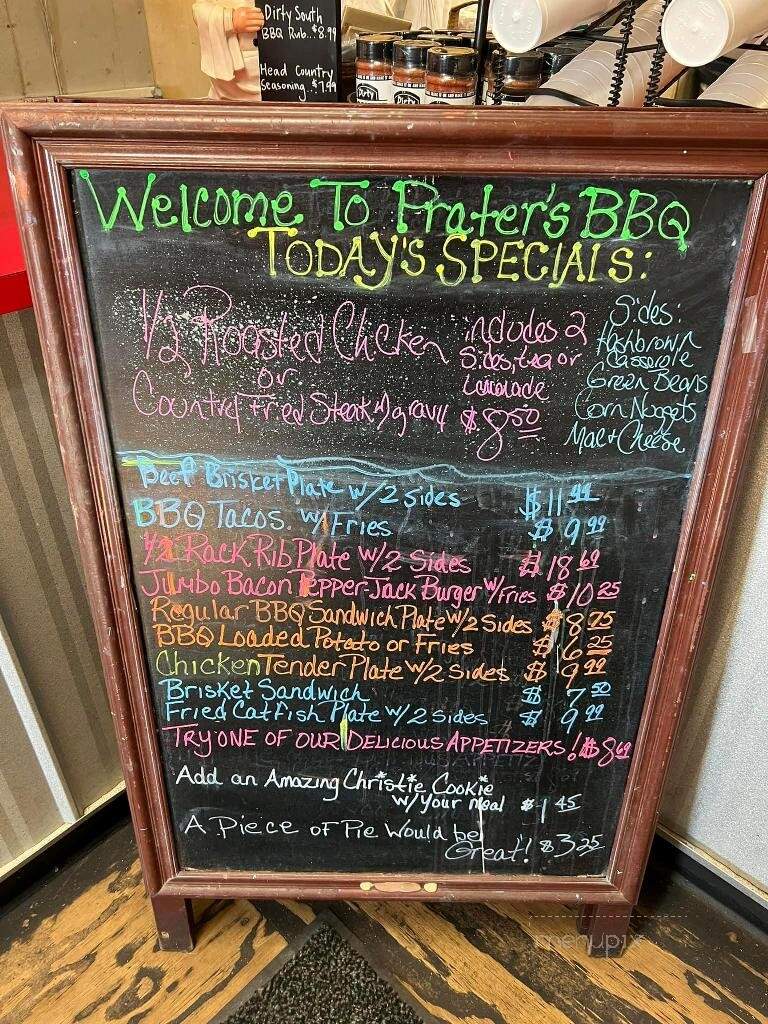 Dirty South
BBQ Rub...$8.99
Head Country
Seasoning..$7.99
Dirty
Welcome To Prater's BBQ
TODAY'S SPECIALS:
1/2 Roasted Chicken
or
Country Fried Steak w/gravy
includes 2
Sides, tea or
Lemonade
$8.50
Sides:
Hashbrown
Casserole
Green Beans
Corn Nuggets
Mac + Cheese
Beef Brisket Plate w/2 sides $11.99
BBQ Tacos. w/Fries $9.99
1/2 Rack Rib Plate w/2 Sides $18.69
Jumbo Bacon Pepper-Jack Burger w/Fries $10.25
Regular BBQ Sandwich Plate w/2 Sides $8.75
BBQ Loaded Potato or Fries $6.25
Chicken Tender Plate w/2 Sides $9.99
Brisket Sandwich $7.50
Fried Catfish Plate w/2 Sides $9.99
TRY ONE OF OUR DELICIOUS APPETIZERS! $8.69
Add an Amazing Christie Cookie
w/your meal $1.45
A Piece of Pie Would be
Great! $3.25
menupix